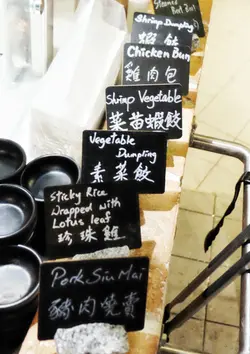 Steamed
Shrimp Dumpling
蝦餃
Chicken Bun
雞肉包
Shrimp Vegetable
菜苗蝦餃
Vegetable
Dumpling
素菜餃
Sticky Rice
Wrapped with
Lotus leaf
珍珠雞
Pork Siu Mai
豬肉燒賣